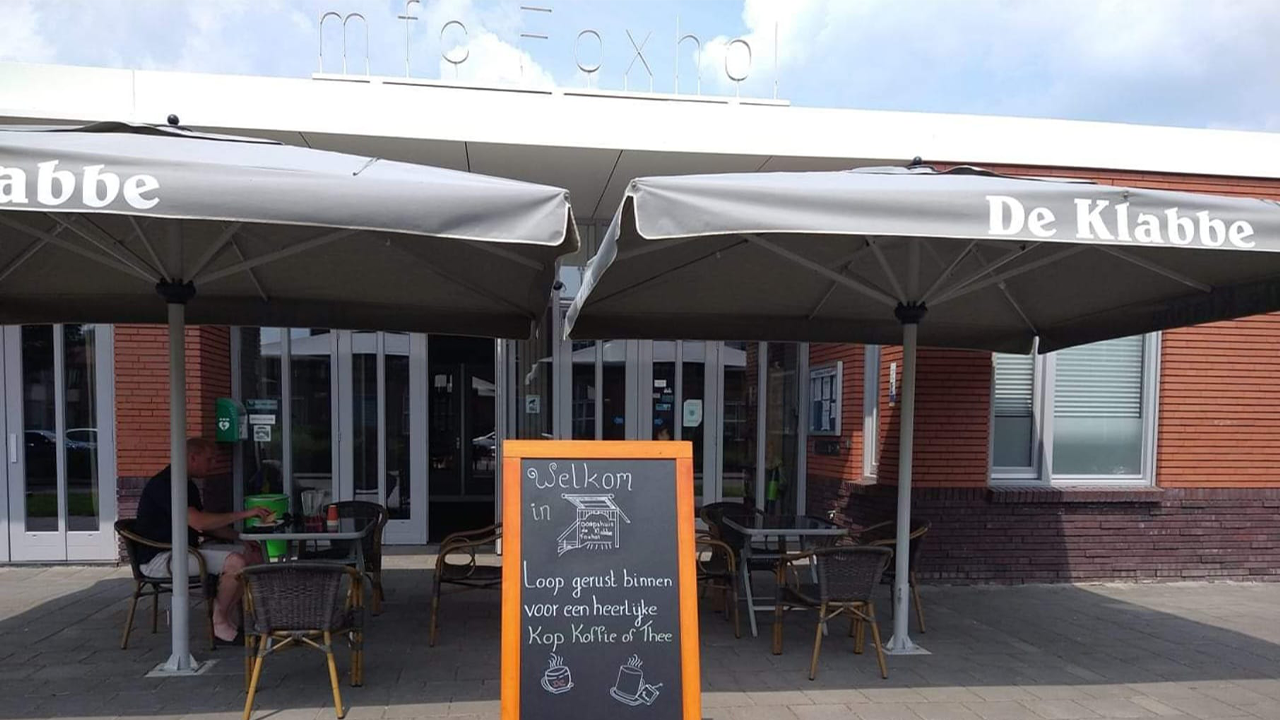 mfc Foxhol
abbe
De Klabbe
Welkom
in
Dorpshuis
de Klabbe
Foxhol
Loop gerust binnen
voor een heerlijke
Kop Koffie of Thee